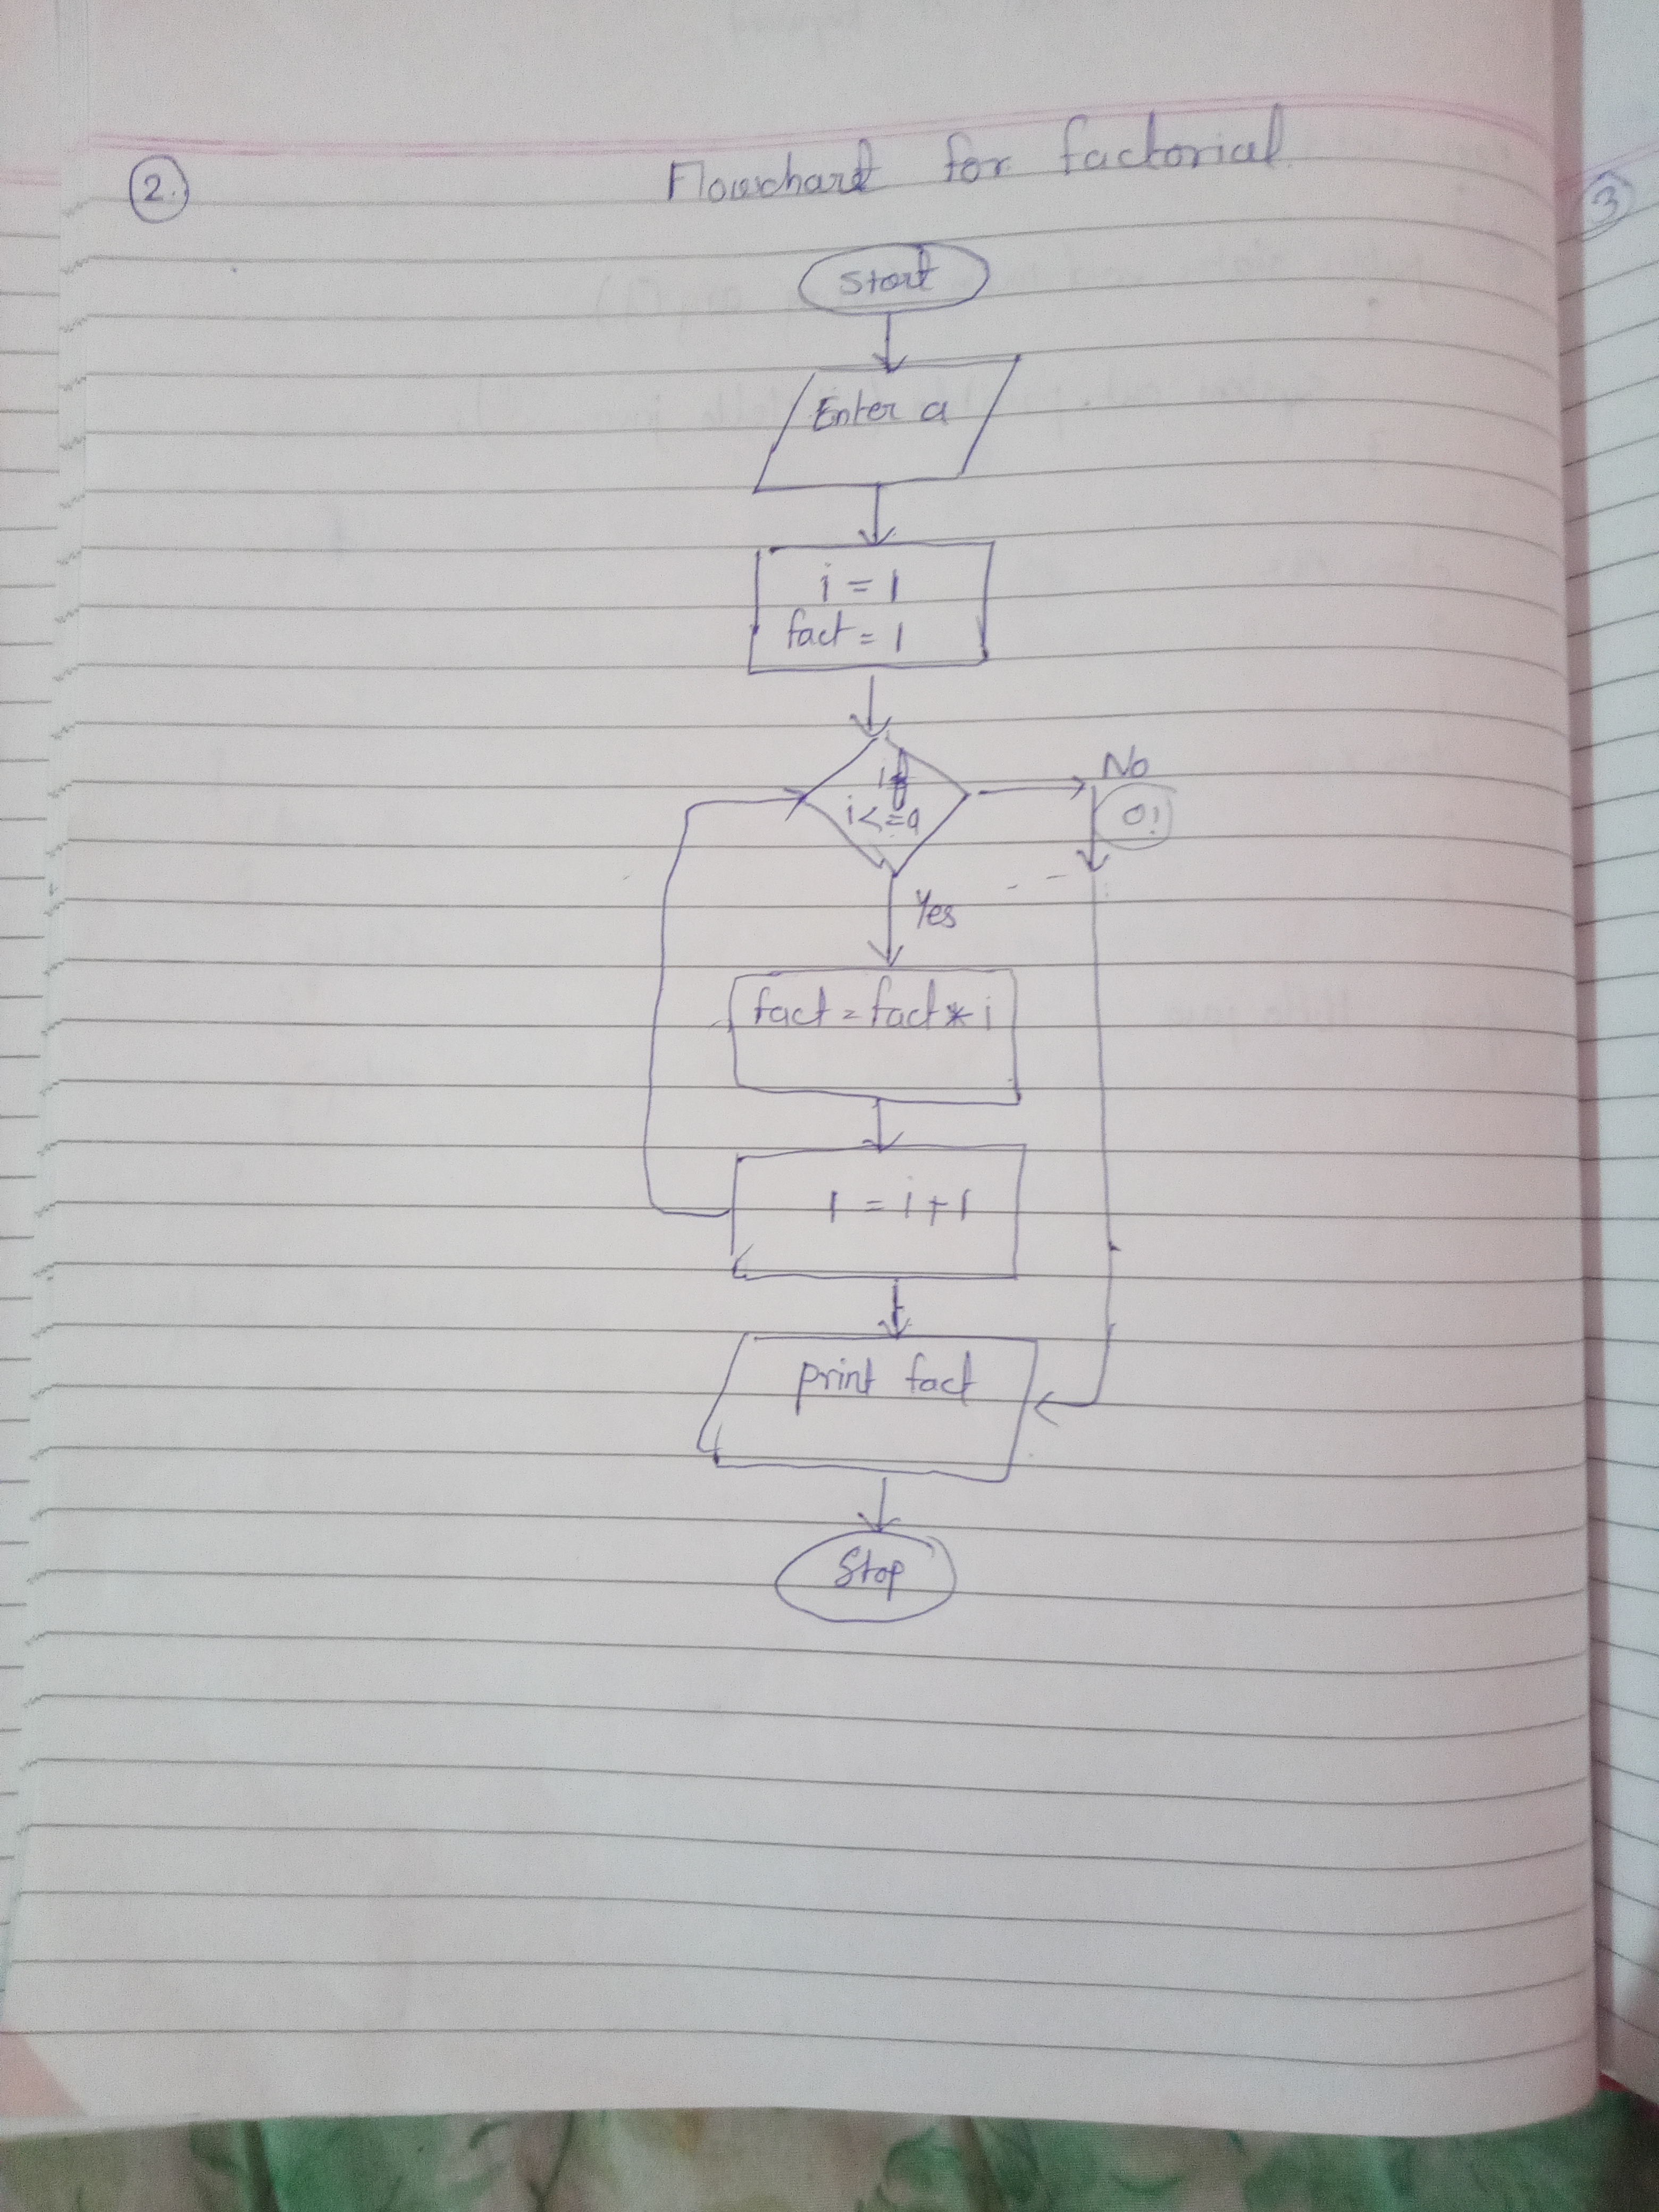 2.
Flowchart for factorial
3
Start
Enter a
i = 1
fact = 1
if
i<=a
No
0!
Yes
fact = fact * i
i = i+1
print fact
Stop